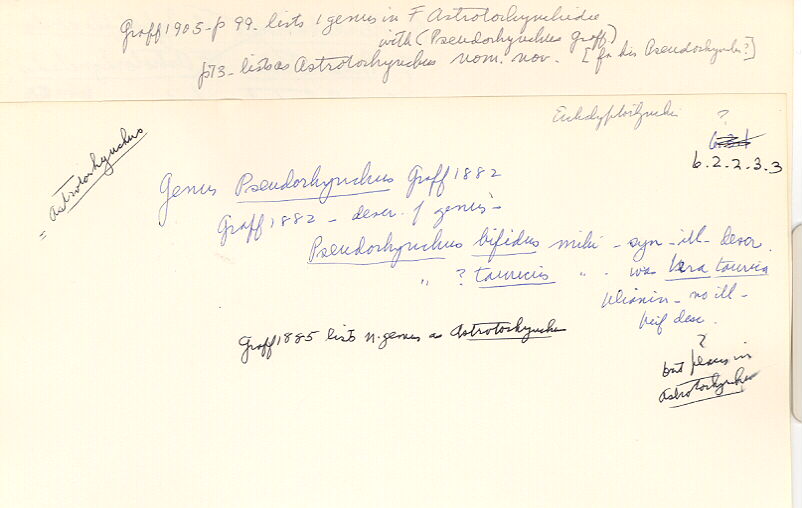 Graff 1905 - p 99 - lists 1 genus in F Astrotorhynchidae
with (Pseudorhynchus Graff)
p73 - lists as Astrotorhynchus nom. nov. [for his Pseudorhynchus?]
?
6.2.2.3.3
Astrotorhynchus
=
Genus Pseudorhynchus Graff 1882
Graff 1882 - descr. of genus -
Pseudorhynchus bifidus mihi - syn - ill - descr.
" ? tauricus " . was Vera taurica
Uljanin - no ill -
brief desc.
Graff 1885 lists n. genus as Astrotorhynchus
?
but places in
Astrotorhynchus